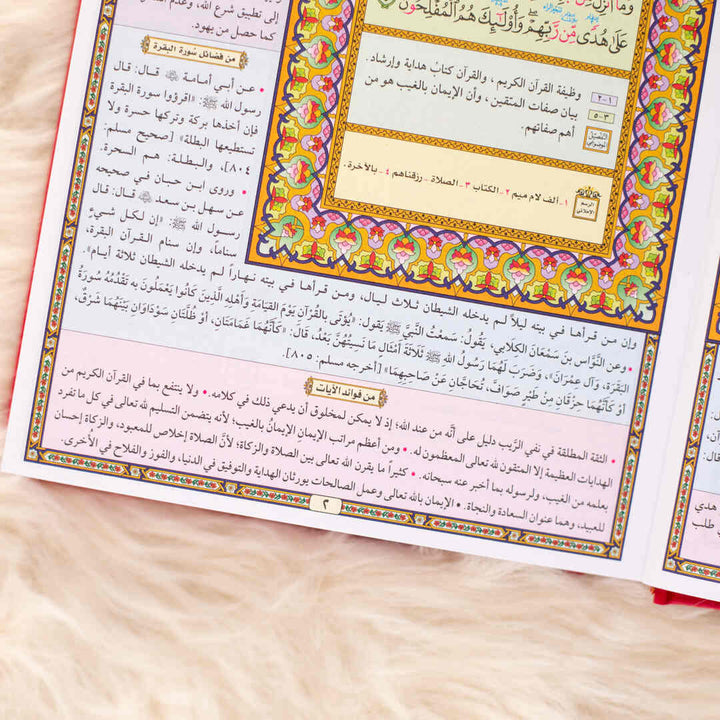 وما أنزل من
على هدى من ربهم وأولئك هم المفلحون
١-٢
٣-٥
وظيفة القرآن الكريم، والقرآن كتاب هداية وإرشاد.
بيان صفات المتقين، وأن الإيمان بالغيب هو من
أهم صفاتهم.
التفصيل الموضوعي
الرسم الإملائي
١- ألف لام ميم ٢- الكتاب ٣- الصلاة - رزقناهم ٤- بالآخرة.
إلى تطبيق شرع الله، وعدم
كما حصل من يهود.
من فضائل سورة البقرة
• عـن أبي أمامة ﷺ قال: قال
رسول الله ﷺ: «اقرؤوا سورة البقرة
فإن أخذها بركة وتركها حسرة ولا
تستطيعها البطلة» [صحيح مسلم:
٨٠٤]، والبـطلـة: هـم السحرة.
• وروى ابـن حبـان في صحيحه
عن سهل بن سعد قال: قال
رسول الله ﷺ: «إن لكـل شـيءٍ
سناماً، وإن سنام القرآن البقرة،
وإن مـن قـرأهـا في بيته ليلاً لـم يدخله الشيطان ثلاث ليال، ومـن قـرأهـا في بيته نهـاراً لـم يدخله الشيطان ثلاثة أيام».
• وعن النَّوَّاس بْن سَمْعَان الكلابي، يَقُولُ: سَمِعْتُ النَّبيَّ ﷺ يَقول: «يُؤتَى بالقُرْآنِ يَوْمَ القِيَامَةِ وَأَهْلِهِ الَّذِينَ كَانُوا يَعْمَلُونَ بِهِ تَقْدُمُهُ سُورَةُ
البَقَرَةِ، وَآلِ عِمْرَانَ»، وَضَرَبَ لَهُمَا رَسُولُ اللهِ ﷺ ثَلَاثَةَ أَمْثَالٍ مَا نَسِيتُهُنَّ بَعْدُ، قَالَ: «كَأَنَّهُمَا غَمَامَتَانِ، أَوْ ظُلَّتَانِ سَوْدَاوَانِ بَيْنَهُمَا شَرْقٌ،
أَوْ كَأَنَّهُمَا حِزْقَانِ مِنْ طَيْرٍ صَوَافَّ، تُحَاجَّانِ عَنْ صَاحِبِهِمَا» [أخرجه مسلم: ٨٠٥].
من فوائد الآيات
• الثقة المطلقة في نفي الرَّيب دليل على أنَّه من عند الله؛ إذ لا يمكن لمخلوق أن يدعي ذلك في كلامه. • ولا ينتفع بما في القرآن الكريم من
الهدايات العظيمة إلا المتقون لله تعالى المعظمون له. • ومن أعظم مراتب الإيمان الإيمانُ بالغيب؛ لأنه يتضمن التسليم لله تعالى في كل ما تفرد
بعلمه من الغيب، ولرسوله بما أخبر عنه سبحانه. • كثيراً ما يقرن الله تعالى بين الصلاة والزكاة؛ لأنَّ الصلاة إخلاص للمعبود، والزكاة إحسان
للعبيد، وهما عنوان السعادة والنجاة. • الإيمان بالله تعالى وعمل الصالحات يورثان الهداية والتوفيق في الدنيا، والفوز والفلاح في الأخرى.
٢
هدي
طلب